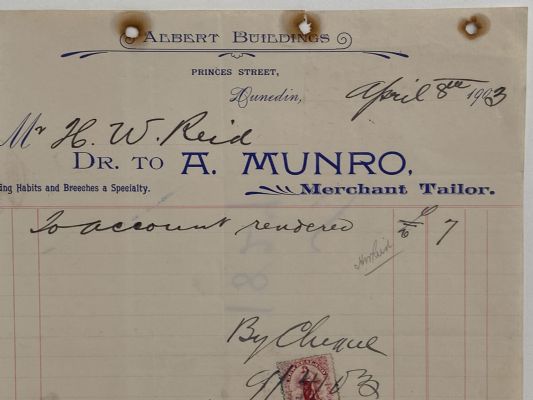 ALBERT BUILDINGS
PRINCES STREET,
Dunedin, April 8th 1903
Mr H. W. Reid
DR. TO A. MUNRO,
ing Habits and Breeches a Specialty.
Merchant Tailor.
To account rendered £ 7
HWReid
By Cheque
9/4/03